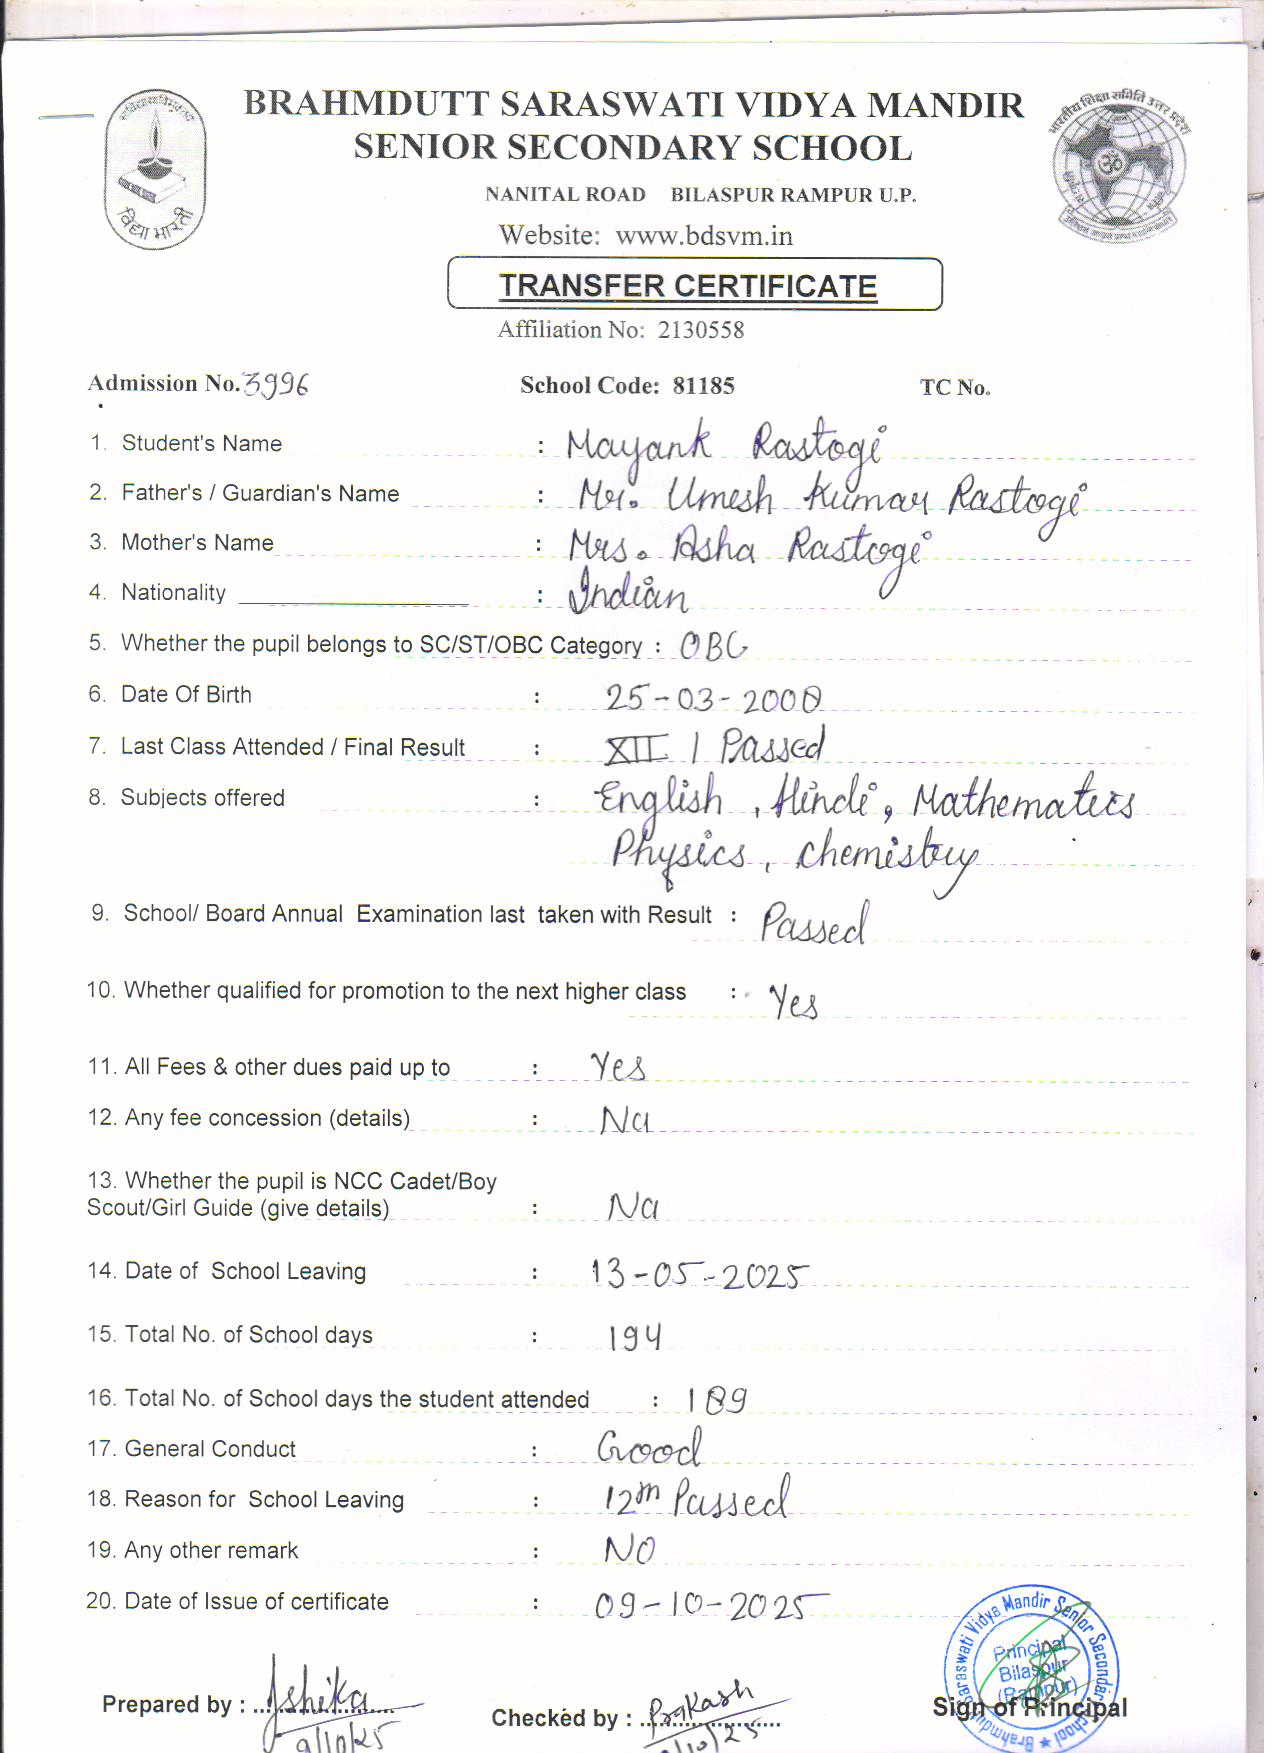 BRAHMDUTT SARASWATI VIDYA MANDIR
SENIOR SECONDARY SCHOOL
NANITAL ROAD BILASPUR RAMPUR U.P.
Website: www.bdsvm.in
TRANSFER CERTIFICATE
Affiliation No: 2130558
विद्या भारती
भारतीय शिक्षा समिति उत्तर प्रदेश
Admission No. 3996 School Code: 81185 TC No.
1. Student's Name : Mayank Rastogi
2. Father's / Guardian's Name : Mr. Umesh Kumar Rastogi
3. Mother's Name : Mrs. Asha Rastogi
4. Nationality : Indian
5. Whether the pupil belongs to SC/ST/OBC Category : OBC
6. Date Of Birth : 25-03-2008
7. Last Class Attended / Final Result : XII / Passed
8. Subjects offered : English, Hindi, Mathematics
Physics, Chemistry
9. School/ Board Annual Examination last taken with Result : Passed
10. Whether qualified for promotion to the next higher class : Yes
11. All Fees & other dues paid up to : Yes
12. Any fee concession (details) : Na
13. Whether the pupil is NCC Cadet/Boy
Scout/Girl Guide (give details) : Na
14. Date of School Leaving : 13-05-2025
15. Total No. of School days : 194
16. Total No. of School days the student attended : 189
17. General Conduct : Good
18. Reason for School Leaving : 12th Passed
19. Any other remark : NO
20. Date of Issue of certificate : 09-10-2025
Saraswati Vidya Mandir Senior Secondary School ★ Brahmdutt
Principal
Bilaspur
(Rampur)
Prepared by : Ishika Checked by : Prakash Sign of Principal
9/10/25 9/10/25